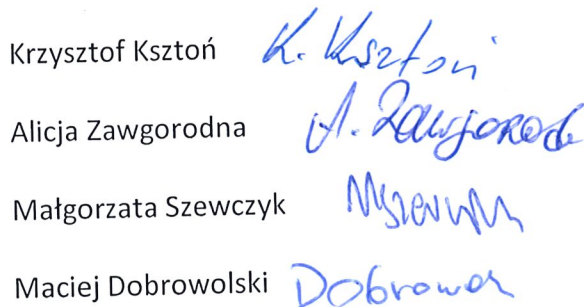 Krzysztof Ksztoń K. Ksztoń
Alicja Zawgorodna A. Zawgorod
Małgorzata Szewczyk
Maciej Dobrowolski